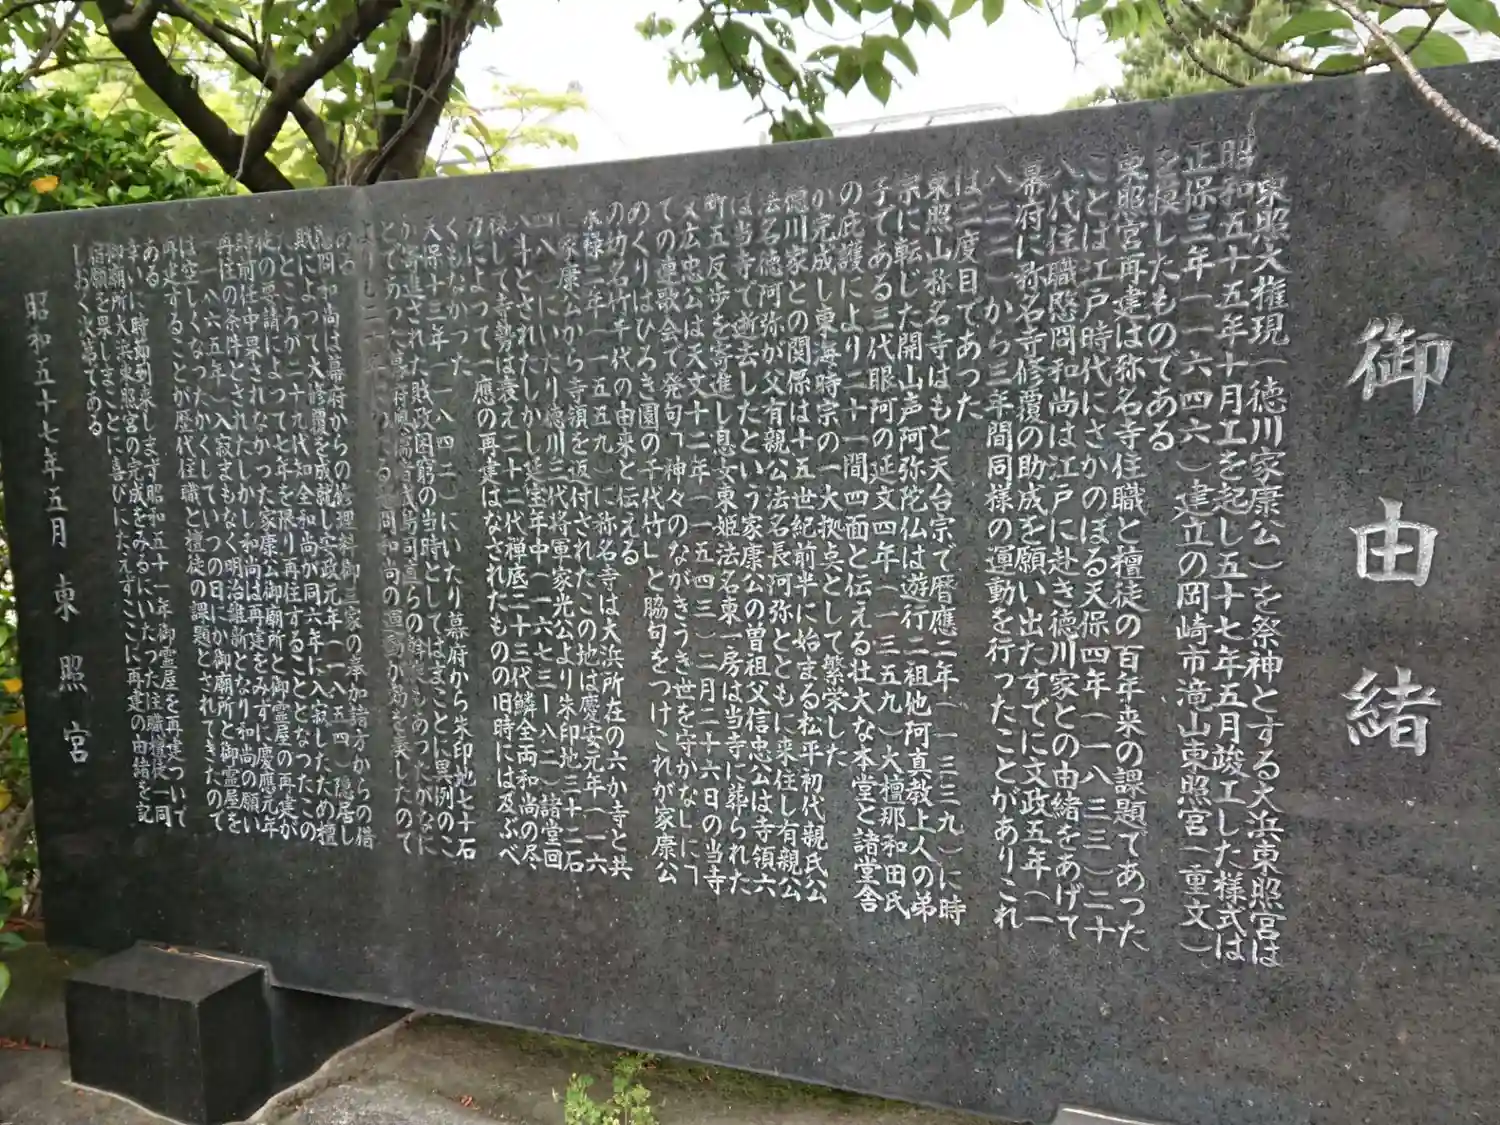 御由緒
東照大権現（徳川家康公）を祭神とする大浜東照宮は
昭和五十五年十月工を起し五十七年五月竣工した様式は
正保三年（一六四六）建立の岡崎市滝山東照宮（重文）
を模したものである
東照宮再建は称名寺住職と檀徒の百年来の課題であった
ことは江戸時代にさかのぼる天保四年（一八三三）二十
八代住職愍冏和尚は江戸に赴き徳川家との由緒をあげて
幕府に称名寺修覆の助成を願い出たすでに文政五年（一
八二二）から三年間同様の運動を行ったことがありこれ
は二度目であった
東照山称名寺はもと天台宗で暦應二年（一三三九）に時
宗に転じた開山声阿弥陀仏は遊行二祖他阿真教上人の弟
子である三代眼阿の延文四年（一三五九）大檀那和田氏
の庇護により二十一間四面と伝える壮大な本堂と諸堂舎
が完成し東海時宗の一大拠点として繁栄した
徳川家との関係は十五世紀前半に始まる松平初代親氏公
法名徳阿弥が父有親公法名長阿弥とともに来住し有親公
は当寺で逝去したという家康公の曽祖父信忠公は寺領六
町五反歩を寄進し息女東姫法名東一房は当寺に葬られた
又広忠公は天文十二年（一五四三）二月二十六日の当寺
での連歌会で発句「神々のながきうき世を守かな」に「
めぐりはひろき園の千代竹」と脇句をつけこれが家康公
の幼名竹千代の由来と伝える
永禄二年（一五五九）に称名寺は大浜所在の六か寺と共
に家康公から寺領を返付されたこの地は慶安元年（一六
四八）にいたり徳川三代将軍家光公より朱印地三十二石
八斗とされたしかし延宝年中（一六七三ー八二）諸堂回
禄して寺勢は衰え二十二代禅底二十三代鱗全両和尚の尽
力によって一應の再建はなされたものの旧時には及ぶべ
くもなかった
天保十三年（一八四二）にいたり幕府から朱印地七十石
が寄進された財政困窮の当時としてはまことに異例のこ
とであったこれは
愍冏和尚は幕府からの修理料御三家の奉加諸方からの借
財によって大修覆を成就し安政元年（一八五四）隠居し
たところが二十九代知全和尚が同六年に入寂したため檀
徒の要請によって七年を限り再住することとなったこの
時前住中果されなかった家康公御廟所と御霊屋の再建が
再住の条件とされたしかし和尚は再建をみずに慶應元年
（一八六五年）入寂まもなく明治維新となり和尚の願い
は空しくなったかくしていつの日にか御廟所と御霊屋を
再建することが歴代住職と檀徒の課題とされてきたので
ある
幸いに時節到来しまず昭和五十一年御霊屋を再建ついで
御廟所大浜東照宮の完成をみるにいたった住職檀徒一同
宿願を果しまことに喜びにたえずここに再建の由緒を記
しおく次第である
昭和五十七年五月　東照宮